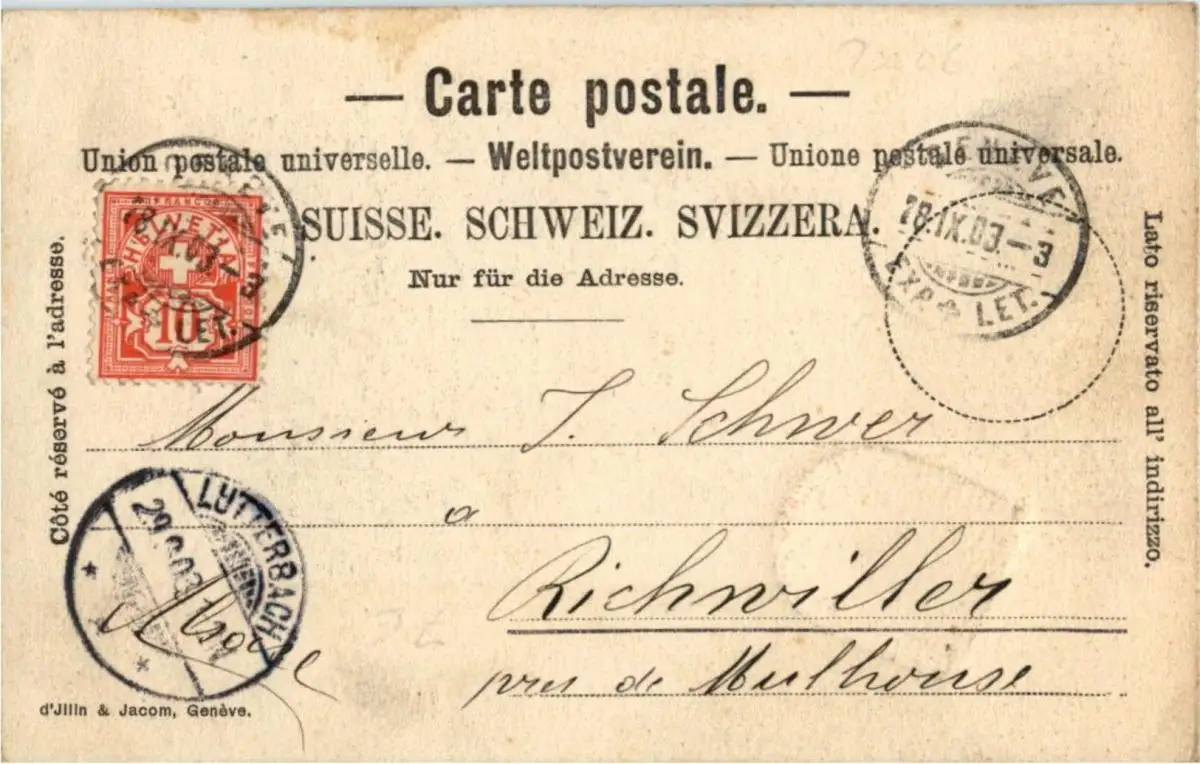 — Carte postale. —
Union postale universelle. — Weltpostverein. — Unione postale universale.
SUISSE. SCHWEIZ. SVIZZERA.
Nur für die Adresse.
Côté réservé à l'adresse.
Lato riservato all' indirizzo.
FRANCO
HELVETIA
10
GENEVE
28.IX.03.–3
EXP. LET.
GENEVE
28.IX.03.–3
EXP. LET.
Monsieur J. Schwer
a
Richwiller
pres de Mulhouse
LUTTERBACH
29.9.03
Alsace
d'Jllin & Jacom, Genève.